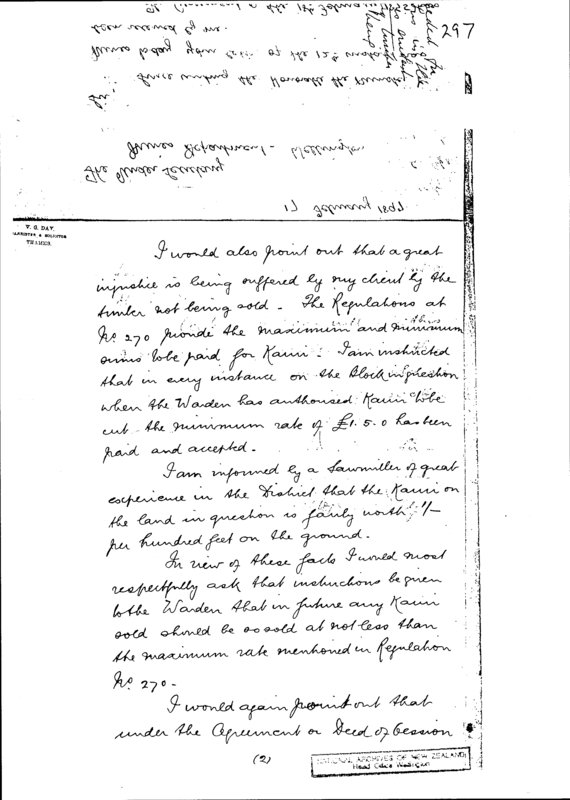 297
17 February 1897
The Under Secretary
Mines Department - Wellington
Sir,
Since writing the Honorable the Minister
Mines today your letter of the 12th
been received by me.
V. G. DAY.
BARRISTER & SOLICITOR
THAMES.
I would also point out that a great
injustice is being suffered by my client by the
timber not being sold - The Regulations at
No. 270 provide the maximum and minimum
sums to be paid for Kauri. I am instructed
that in every instance on the Block in question
when the Warden has authorised Kauri to be
cut the minimum rate of £1.5.0 has been
paid and accepted.
I am informed by a Sawmiller of great
experience in the District that the Kauri on
the land in question is fairly worth 1/-
per hundred feet on the ground.
In view of these facts I would most
respectfully ask that instructions be given
to the Warden that in future any Kauri
sold should be so sold at not less than
the maximum rate mentioned in Regulation
No. 270 -
I would again point out that
under the Agreement or Deed of Cession
(2)
NATIONAL ARCHIVES OF NEW ZEALAND
Head Office Wellington